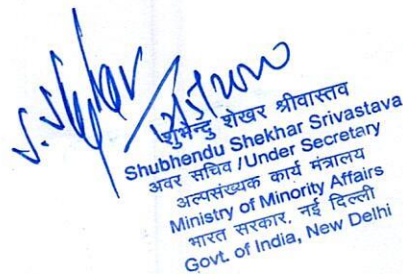 S. Shekhar
शुभेन्दु शेखर श्रीवास्तव
Shubhendu Shekhar Srivastava
अवर सचिव /Under Secretary
अल्पसंख्यक कार्य मंत्रालय
Ministry of Minority Affairs
भारत सरकार, नई दिल्ली
Govt. of India, New Delhi